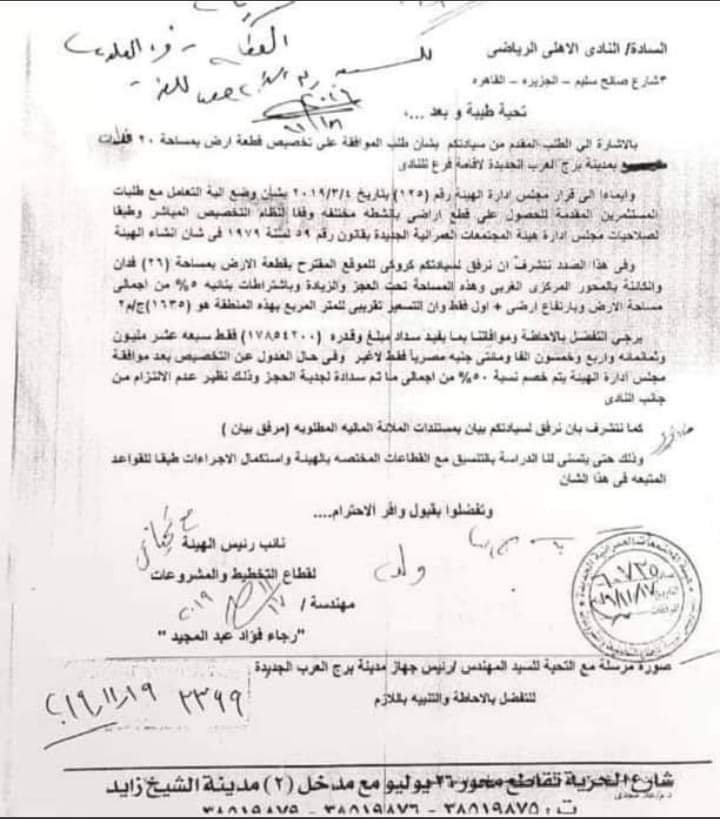 السادة/ النادى الاهلى الرياضى
٣ شارع صالح سليم – الجزيره – القاهره
تحية طيبة و بعد ...،
بالاشارة الى الطلب المقدم من سيادتكم بشأن طلب الموافقة على تخصيص قطعة ارض بمساحة ٢٠
بمدينة برج العرب الجديدة لأقامة فرع للنادى
وايماءا الى قرار مجلس ادارة الهيئة رقم (١٢٥) بتاريخ ٢٠١٩/٣/٤ بشأن وضع الية التعامل مع طلبات
المستثمرين المقدمة للحصول على قطع اراضى بأنشطه مختلفه وفقا لنظام التخصيص المباشر وطبقا
لصلاحيات مجلس ادارة هيئة المجتمعات العمرانية الجديدة بقانون رقم ٥٩ لسنة ١٩٧٩ فى شان انشاء الهيئة
وفى هذا الصدد نتشرف ان نرفق لسيادتكم كروكى للموقع المقترح بقطعة الارض بمساحة (٢٦) فدان
والكائنة بالمحور المركزى الغربى وهذه المساحة تحت العجز والزيادة وباشتراطات بنائيه ٥% من اجمالى
مساحة الارض وبارتفاع ارضى + اول فقط وان التسعير تقريبى للمتر المربع بهذه المنطقة هو (١٦٣٥)ج/م٢
يرجي التفضل بالاحاطة وموافاتنا بما يفيد سداد مبلغ وقدره (١٧٨٥٤٢٠٠) فقط سبعه عشر مليون
وثمانمائه واربع وخمسون الفا ومائتى جنيه مصريا فقط لاغير وفى حال العدول عن التخصيص بعد موافقة
مجلس ادارة الهيئة يتم خصم نسبة ٥٠% من اجمالى ما تم سدادة لجدية الحجز وذلك نظير عدم الالتزام من
جانب النادى
كما نتشرف بان نرفق لسيادتكم بيان بمستندات الملائة الماليه المطلوبه (مرفق بيان )
وذلك حتى يتسنى لنا الدراسة بالتنسيق مع القطاعات المختصه بالهيئة واستكمال الاجراءات طبقا للقواعد
المتبعه فى هذا الشان
وتفضلوا بقبول وافر الاحترام....
نائب رئيس الهيئة
لقطاع التخطيط والمشروعات
مهندسة /
"رجاء فؤاد عبد المجيد "
صورة مرسلة مع التحية للسيد المهندس /رئيس جهاز مدينة برج العرب الجديدة
للتفضل بالاحاطة والتنبيه باللازم
٢٣٩٩
شارع الحرية تقاطع محور ٢٦ يوليو مع مدخل (٢) مدينة الشيخ زايد
ت: ٣٨٥١٩٨٧٥ - ٣٨٥١٩٨٧٦ - ٣٨٥١٩٨٧٩